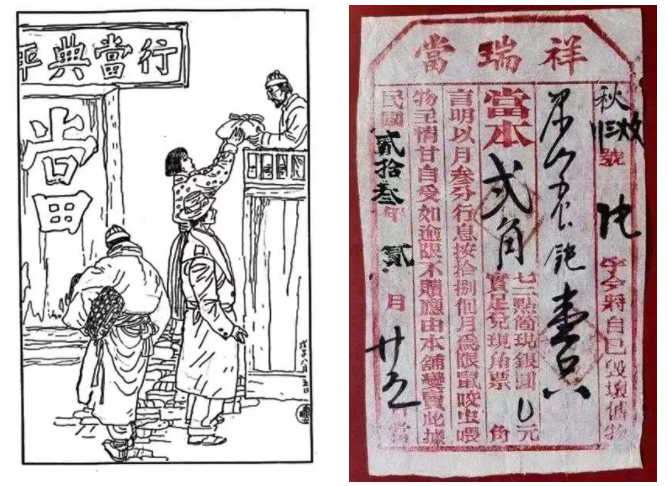 平典當行
當
戊子八月五日
祥瑞當
秋 號 字今將自己毀壞舊物
壹只
當本弍角
七二點當現銀圓 元
實足兌現角票 角
言明以月叁分行息按拾捌個月爲限鼠咬虫喂
物至情甘自受如逾限不贖應由本舖變賣此據
民國貳拾叁年貳月廿 當